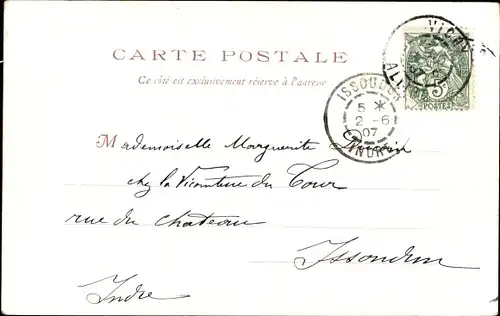 CARTE POSTALE
Ce côté est exclusivement réservé à l'adresse
VICHY
ALLIER
5c
POSTES
ISSOUDUN
5 *
2 - 6
07
INDRE
Mademoiselle Marguerite
chez la Vicomtesse du Tour
rue du Chateau
Issoudun
Indre